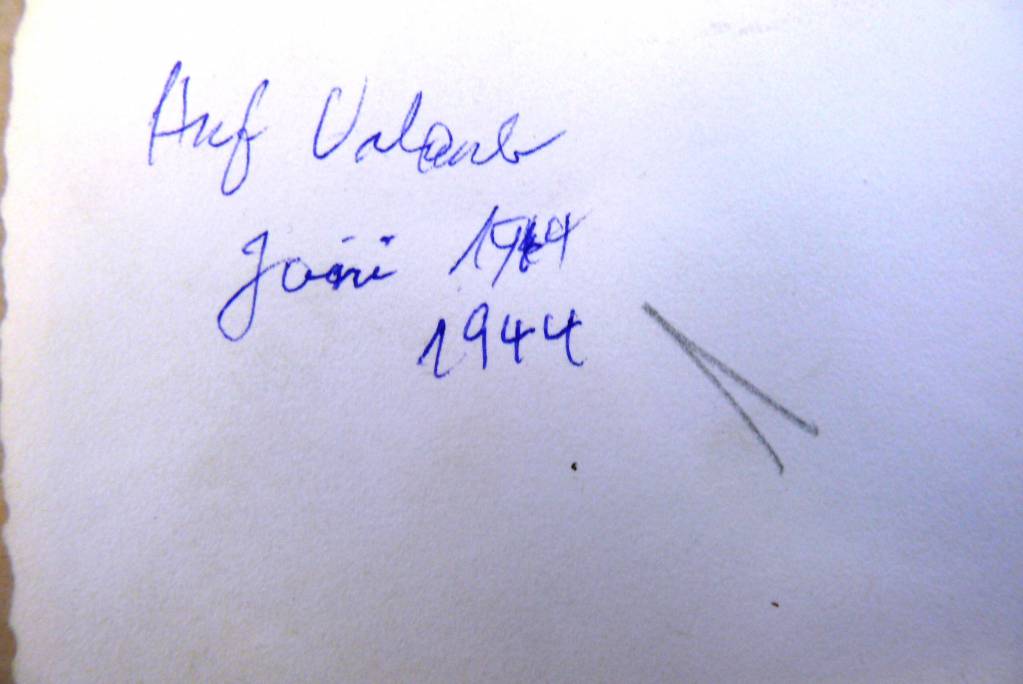 Auf Urlaub
Juni 1944
1944